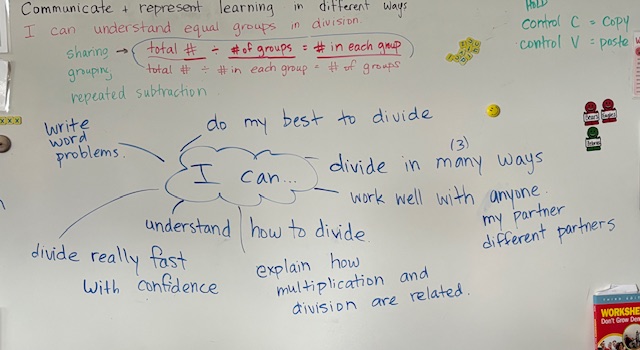 Communicate + represent learning in different ways
I can understand equal groups in division.
sharing → total # ÷ # of groups = # in each group
grouping total # ÷ # in each group = # of groups
repeated subtraction
HOLD
control C = Copy
control V = paste
write
word
problems.
do my best to divide
I can...
(3)
divide in many ways
work well with anyone.
my partner
different partners
understand how to divide.
divide really fast
with confidence
explain how
multiplication and
division are related.
WORKSHE
Don't Grow Den